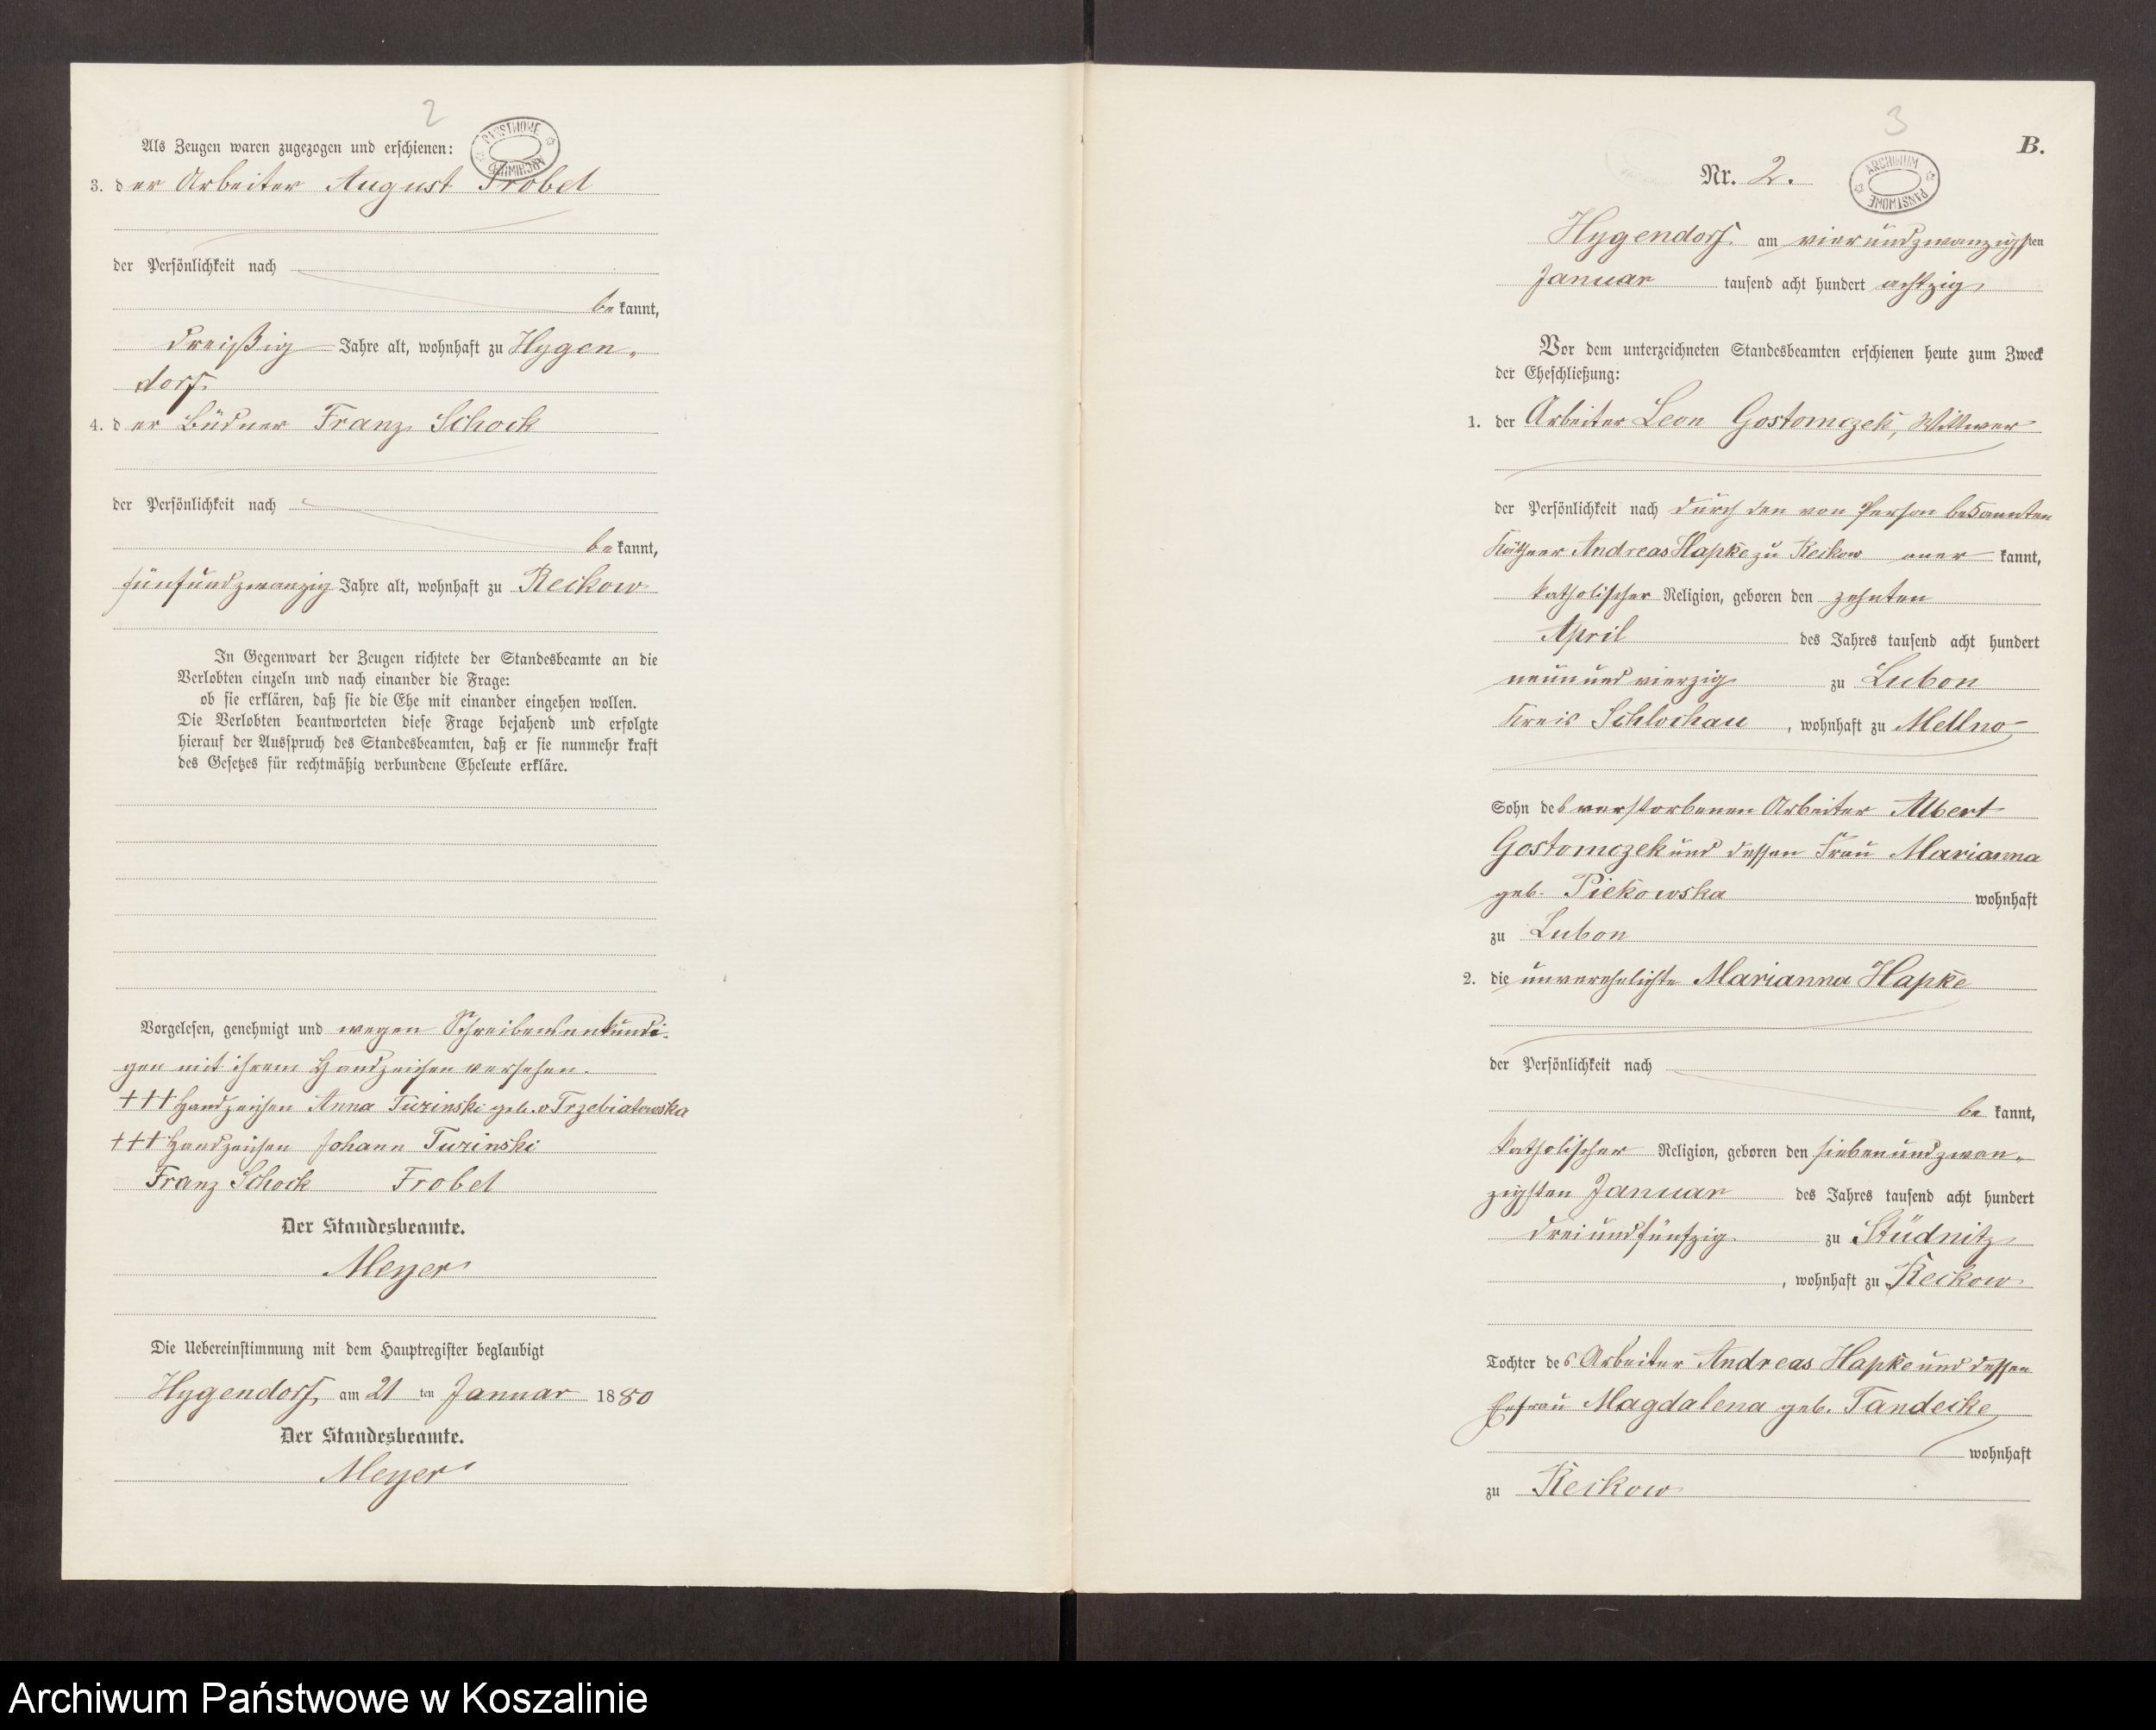 2
PAŃSTWOWE
ARCHIWUM
Als Zeugen waren zugezogen und erschienen:
3. der Arbeiter August Frobel
der Persönlichkeit nach
bekannt,
dreißig Jahre alt, wohnhaft zu Hygen-
dorf.
4. der Büdner Franz Schock
der Persönlichkeit nach
bekannt,
fünfundzwanzig Jahre alt, wohnhaft zu Reckow
In Gegenwart der Zeugen richtete der Standesbeamte an die
Verlobten einzeln und nach einander die Frage:
ob sie erklären, daß sie die Ehe mit einander eingehen wollen.
Die Verlobten beantworteten diese Frage bejahend und erfolgte
hierauf der Ausspruch des Standesbeamten, daß er sie nunmehr kraft
des Gesetzes für rechtmäßig verbundene Eheleute erkläre.
Vorgelesen, genehmigt und wegen Schreibensunkundi-
gen mit ihrem Handzeichen versehen.
+++ Handzeichen Anna Turinski geb. v Trzebiatowska
+++ Handzeichen Johann Turinski
Franz Schock Frobel
Der Standesbeamte.
Meyer
Die Uebereinstimmung mit dem Hauptregister beglaubigt
Hygendorf, am 21 ten Januar 1880
Der Standesbeamte.
Meyer
3
B.
Nr. 2.
ARCHIWUM
PAŃSTWOWE
Hygendorf am vierundzwanzigsten
Januar tausend acht hundert achtzig
Vor dem unterzeichneten Standesbeamten erschienen heute zum Zweck
der Eheschließung:
1. der Arbeiter Leon Gostomczek, Wittwer
der Persönlichkeit nach durch den von Person bekannten
Käthner Andreas Hapke zu Reckow anerkannt,
katholischer Religion, geboren den zehnten
April des Jahres tausend acht hundert
neunundvierzig zu Lubon
Kreis Schlochau, wohnhaft zu Mellno
Sohn des verstorbenen Arbeiter Albert
Gostomczek und dessen Frau Marianna
geb. Piekowska wohnhaft
zu Lubon
2. die unverehelichte Marianna Hapke
der Persönlichkeit nach
bekannt,
katholischer Religion, geboren den siebenundzwan-
zigsten Januar des Jahres tausend acht hundert
dreiundfünfzig zu Stüdnitz
, wohnhaft zu Reckow
Tochter des Arbeiter Andreas Hapke und dessen
Ehefrau Magdalena geb. Tandecke
wohnhaft
zu Reckow
Archiwum Państwowe w Koszalinie